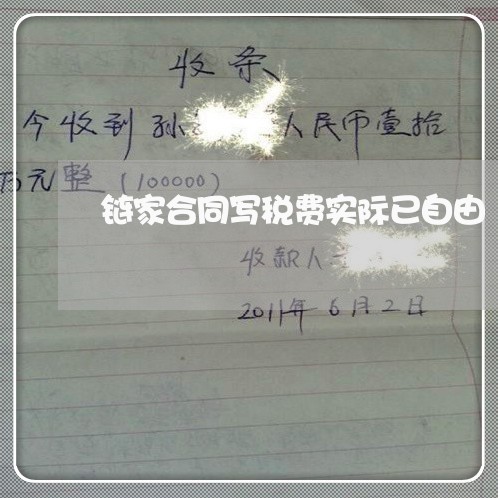 收条
今收到孙 人民币壹拾
万元整（100000）
链家合同写税费实际已自由
收款人
2011年6月2日